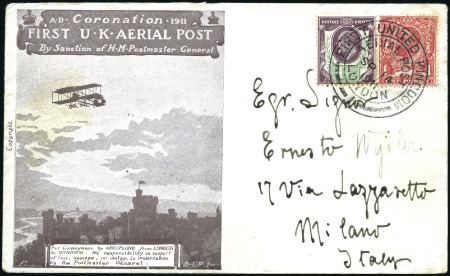 A·D· Coronation ·1911
FIRST U·K·AERIAL POST
By Sanction of H·M·Postmaster General
Copyright.
For Conveyance by AEROPLANE from LONDON
to WINDSOR. No responsibility in respect
of loss, damage, or delay, is undertaken
by the Postmaster General
FIRST UNITED KINGDOM
AERIAL POST
LONDON
Egr. Signor
Ernesto Wydler
17 Via Lazzaretto
Milano
Italy